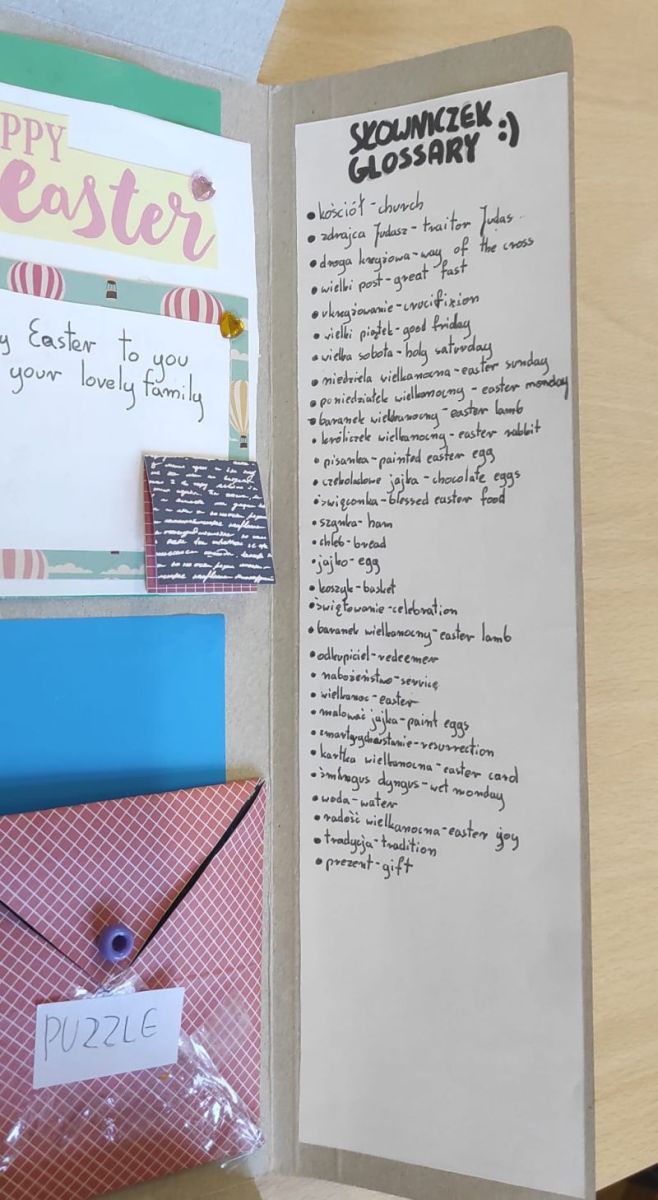 PPY
easter
y Easter to you
your lovely family
PUZZLE
SŁOWNICZEK :)
GLOSSARY
• kościół - church
• zdrajca Judasz - traitor Judas
• droga krzyżowa - way of the cross
• wielki post - great fast
• ukrzyżowanie - crucifixion
• wielki piątek - good friday
• wielka sobota - holy saturday
• niedziela wielkanocna - easter sunday
• poniedziałek wielkanocny - easter monday
• baranek wielkanocny - easter lamb
• króliczek wielkanocny - easter rabbit
• pisanka - painted easter egg
• czekoladowe jajka - chocolate eggs
• święconka - blessed easter food
• szynka - ham
• chleb - bread
• jajko - egg
• koszyk - basket
• świętowanie - celebration
• baranek wielkanocny - easter lamb
• odkupiciel - redeemer
• nabożeństwo - service
• wielkanoc - easter
• malować jajka - paint eggs
• zmartwychwstanie - resurrection
• kartka wielkanocna - easter card
• śmingus dyngus - wet monday
• woda - water
• radość wielkanocna - easter yoy
• tradycja - tradition
• prezent - gift